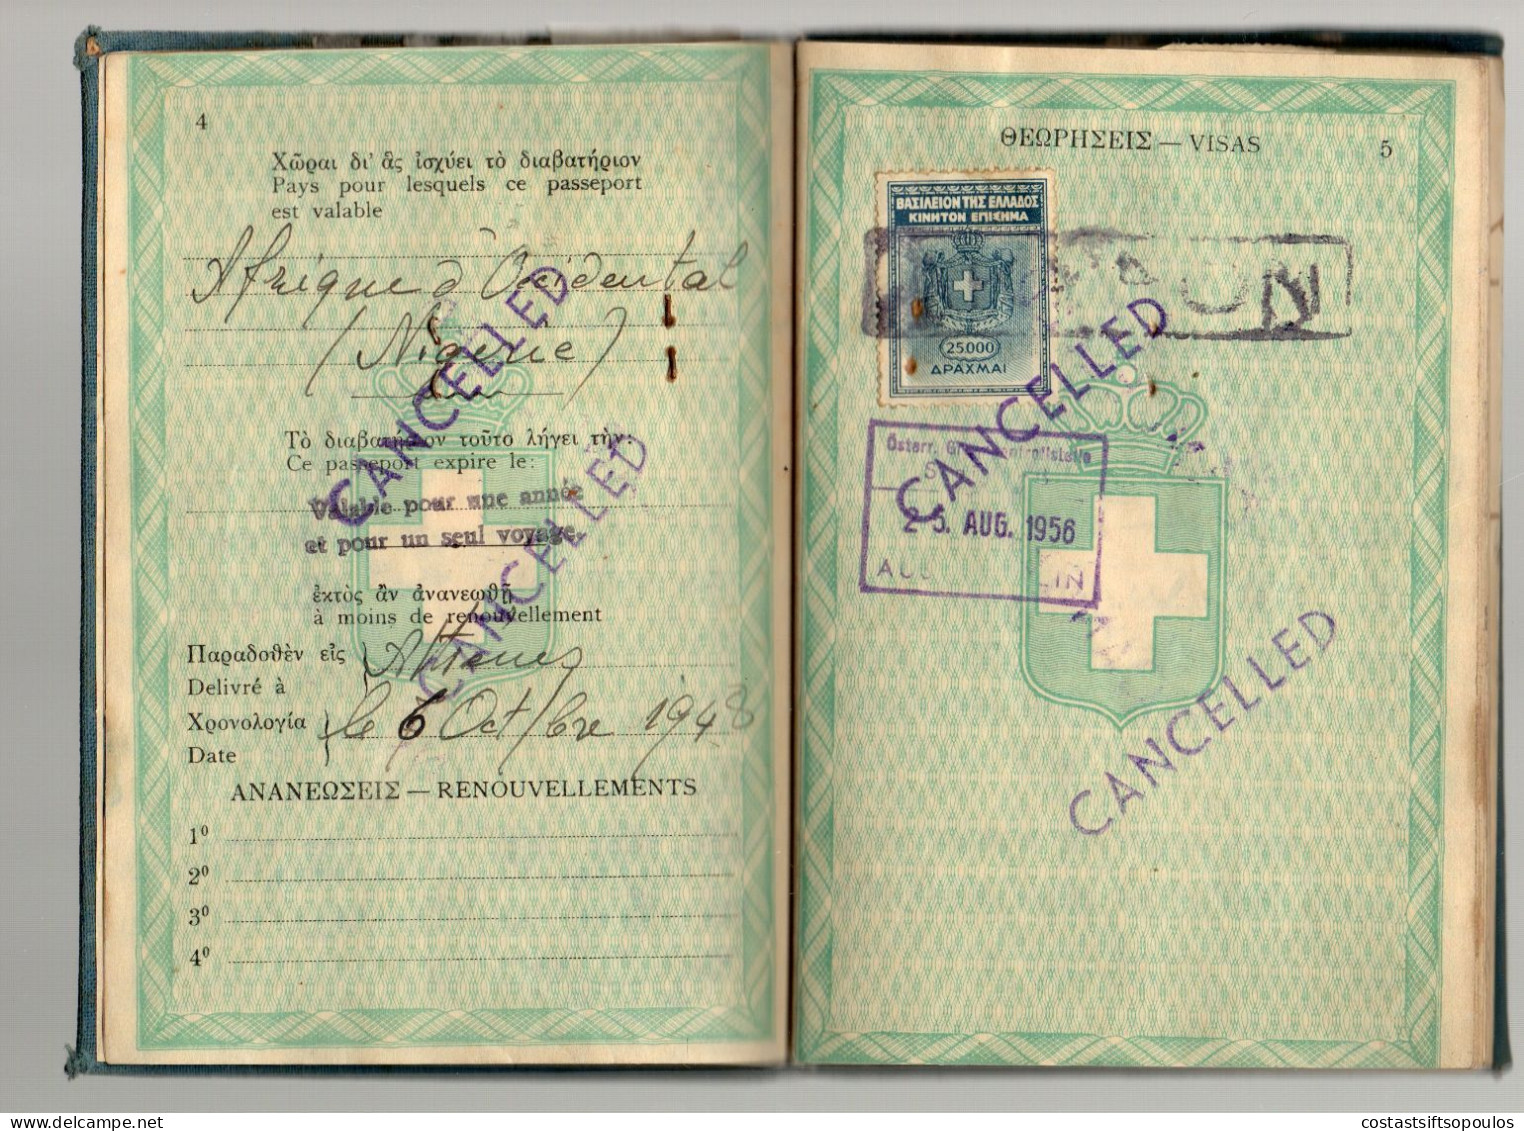 4
Χῶραι δι' ἃς ἰσχύει τὸ διαβατήριον
Pays pour lesquels ce passeport
est valable
Afrique d'Occidental
(Nigerie)
CANCELLED
Τὸ διαβατήριον τοῦτο λήγει τὴν:
Ce passeport expire le:
Valable pour une année
et pour un seul voyage
CANCELLED
ἐκτὸς ἂν ἀνανεωθῇ
à moins de renouvellement
Παραδοθὲν εἰς
Delivré à
Athenes
Χρονολογία
Date
le 6 Octbre 1948
ΑΝΑΝΕΩΣΕΙΣ — RENOUVELLEMENTS
1⁰
2⁰
3⁰
4⁰
ΘΕΩΡΗΣΕΙΣ — VISAS
5
ΒΑΣΙΛΕΙΟΝ ΤΗΣ ΕΛΛΑΔΟΣ
ΚΙΝΗΤΟΝ ΕΠΙΣΗΜΑ
25000
ΔΡΑΧΜΑΙ
CANCELLED
Österr.
25. AUG. 1956
CANCELLED
costastsiftsopoulos